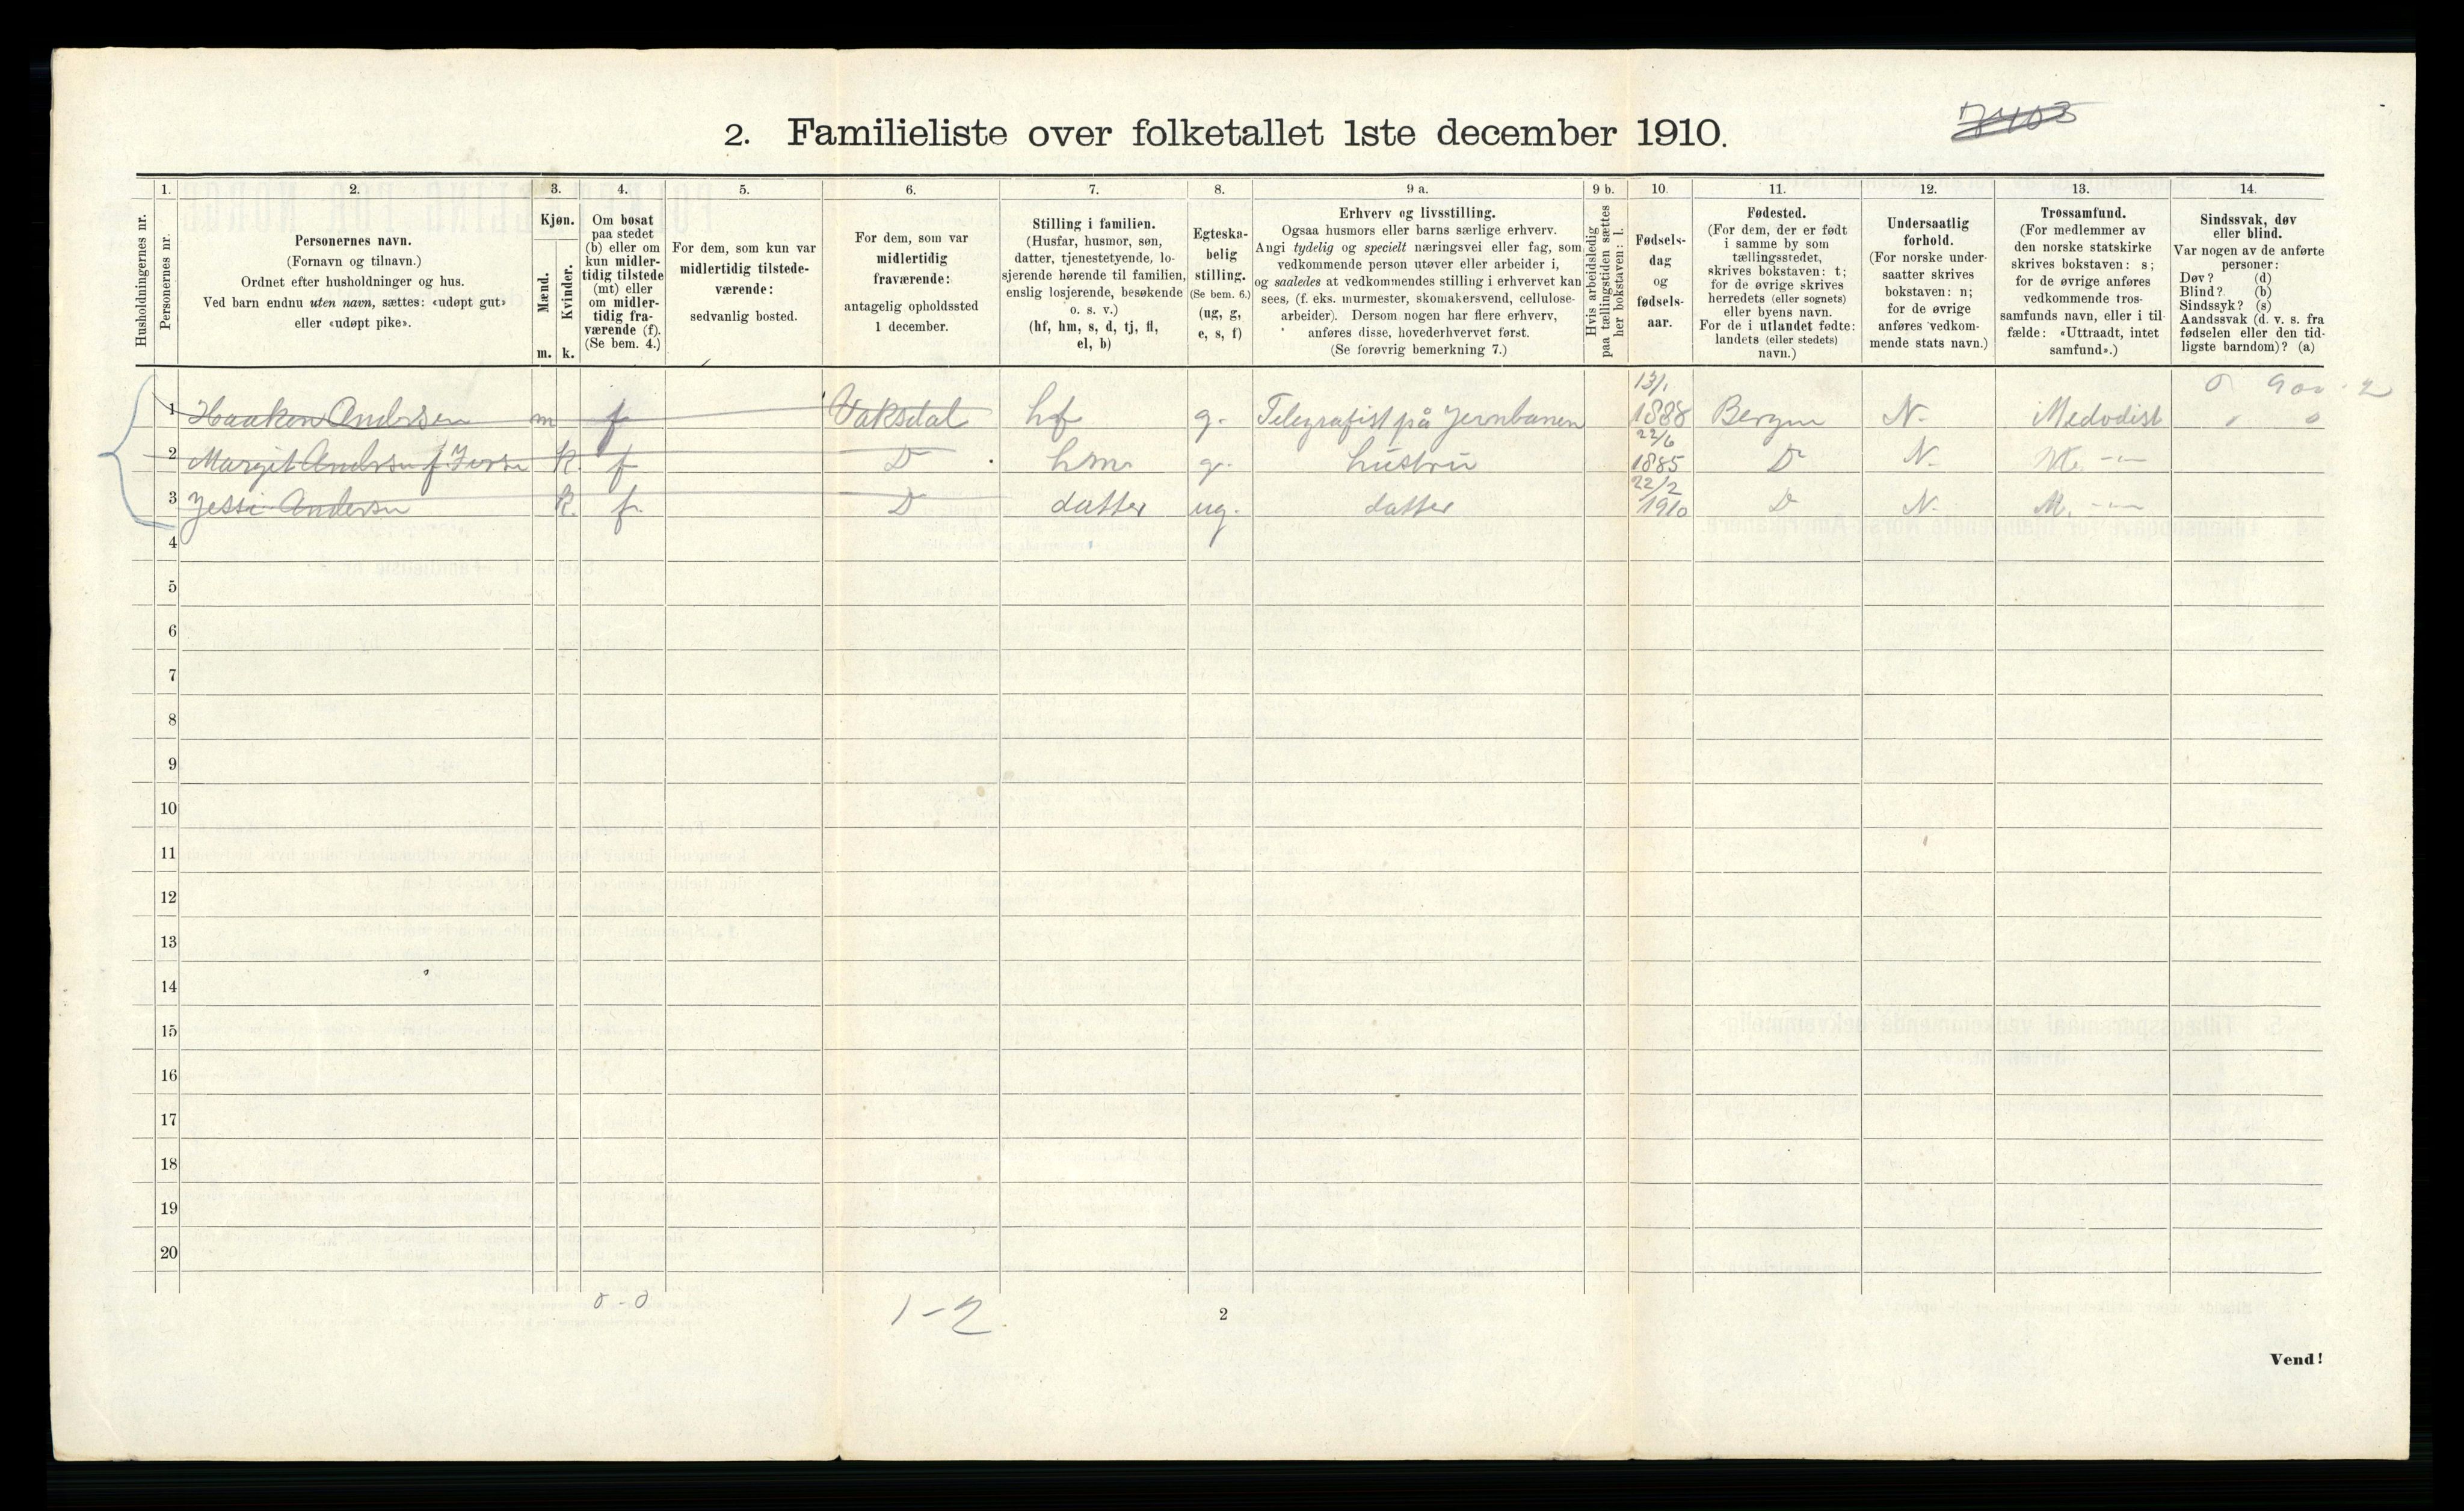 7403
2. Familieliste over folketallet 1ste december 1910.
Husholdningernes nr.
1.
Personernes nr.
2.
Personernes navn.
(Fornavn og tilnavn.)
Ordnet efter husholdninger og hus.
Ved barn endnu uten navn, sættes: «udøpt gut»
eller «udøpt pike».
3.
Kjøn.
Mænd.
Kvinder.
m. k.
4.
Om bosat
paa stedet
(b) eller om
kun midler-
tidig tilstede
(mt) eller
om midler-
tidig fra-
værende (f).
(Se bem. 4.)
5.
For dem, som kun var
midlertidig tilstede-
værende:
sedvanlig bosted.
6.
For dem, som var
midlertidig
fraværende:
antagelig opholdssted
1 december.
7.
Stilling i familien.
(Husfar, husmor, søn,
datter, tjenestetyende, lo-
sjerende hørende til familien,
enslig losjerende, besøkende
o. s. v.)
(hf, hm, s, d, tj, fl,
el, b)
8.
Egteska-
belig
stilling.
(Se bem. 6.)
(ug, g,
e, s, f)
9 a.
Erhverv og livsstilling.
Ogsaa husmors eller barns særlige erhverv.
Angi tydelig og specielt næringsvei eller fag, som
vedkommende person utøver eller arbeider i,
og saaledes at vedkommendes stilling i erhvervet kan
sees, (f. eks. murmester, skomakersvend, cellulose-
arbeider). Dersom nogen har flere erhverv,
anføres disse, hovederhvervet først.
(Se forøvrig bemerkning 7.)
9 b.
Hvis arbeidsledig
paa tællingstiden sættes
her bokstaven: l.
10.
Fødsels-
dag
og
fødsels-
aar.
11.
Fødested.
(For dem, der er født
i samme by som
tællingsstedet,
skrives bokstaven: t;
for de øvrige skrives
herredets (eller sognets)
eller byens navn.
For de i utlandet fødte:
landets (eller stedets)
navn.)
12.
Undersaatlig
forhold.
(For norske under-
saatter skrives
bokstaven: n;
for de øvrige
anføres vedkom-
mende stats navn.)
13.
Trossamfund.
(For medlemmer av
den norske statskirke
skrives bokstaven: s;
for de øvrige anføres
vedkommende tros-
samfunds navn, eller i til-
fælde: «Uttraadt, intet
samfund».)
14.
Sindssvak, døv
eller blind.
Var nogen av de anførte
personer:
Døv? (d)
Blind? (b)
Sindssyk? (s)
Aandssvak (d. v. s. fra
fødselen eller den tid-
ligste barndom)? (a)
1 Haakon Andersen m f Vaksdal hf g. Telegrafist på Jernbanen 13/1 1888 Bergen N. Medodist
2 Margit Andersen f. K. f D hm. g. hustru 22/6 1885 D N. M. -"-
3 Jessi Andersen K. f. D datter ug. datter 22/2 1910 D N. M. -"-
4
5
6
7
8
9
10
11
12
13
14
15
16
17
18
19
20
0 - 0
1 - 2
2
Vend!